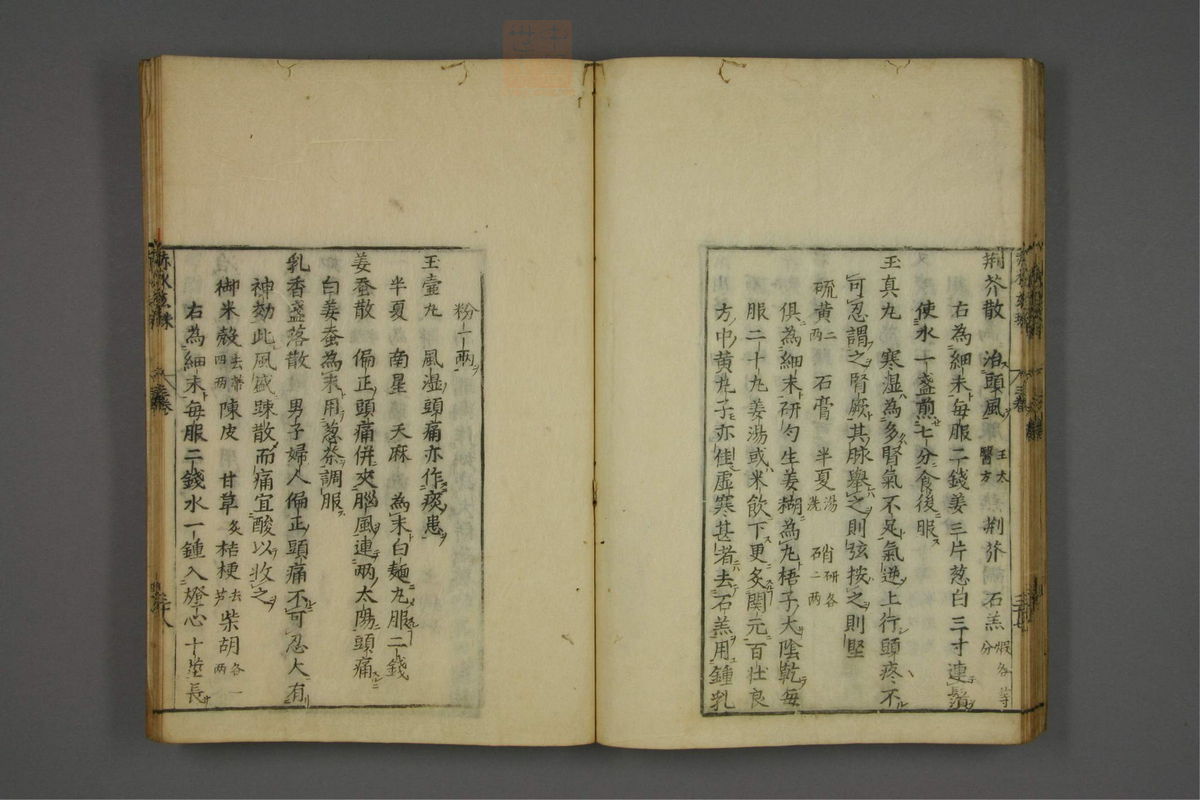 荊芥散 治頭風 王太醫方 荊芥 石羔 煆各等分
右為細末每服二錢姜三片葱白三寸連鬚
使水一盞煎七分食後服
玉真丸 寒濕為多腎氣不足氣逆上行頭疼不
可忍謂之腎厥其脉舉之則弦按之則堅
硫黄二兩 石膏 半夏湯洗 硝研各二兩
俱為細末研勻生姜糊為丸梧子大陰乾每
服二十丸姜湯或米飲下更炙関元百壮良
方中黄丸子亦佳虚寒甚者去石羔用鍾乳
粉一兩
玉壷丸 風湿頭痛亦作痰患
半夏 南星 天麻 為末白麺丸服二錢
姜蚕散 偏正頭痛併夾腦風連兩太陽頭痛
白姜蚕為末用葱茶調服
乳香盞落散 男子婦人偏正頭痛不可忍大有
神効此風盛踈散而痛宜酸以收之
御米殻去蒂四兩 陳皮 甘草炙 桔梗去芦 柴胡各一兩
右為細末每服二錢水一鍾入燈心十莖長